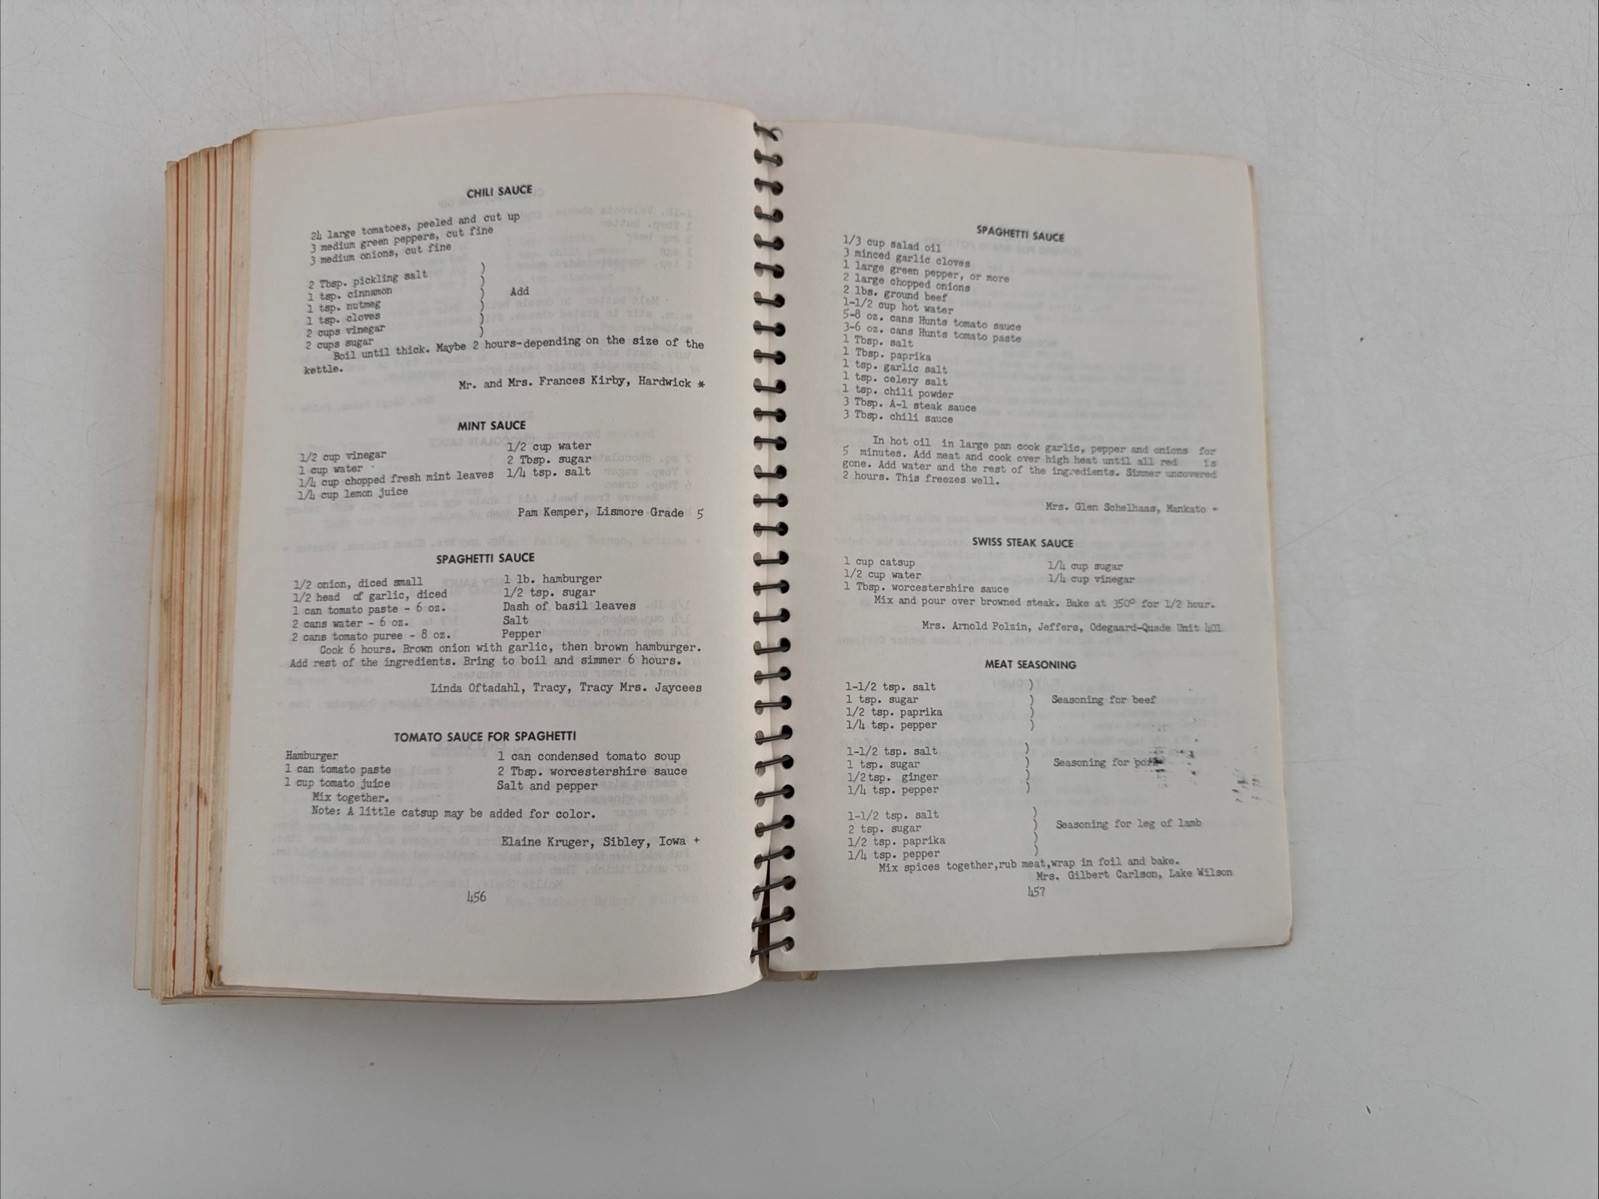 CHILI SAUCE
24 large tomatoes, peeled and cut up
3 medium green peppers, cut fine
3 medium onions, cut fine
2 Tbsp. pickling salt )
1 tsp. cinnamon ) Add
1 tsp. nutmeg )
1 tsp. cloves )
2 cups vinegar )
2 cups sugar )
Boil until thick. Maybe 2 hours-depending on the size of the
kettle.
Mr. and Mrs. Frances Kirby, Hardwick *
MINT SAUCE
1/2 cup vinegar 1/2 cup water
1 cup water 2 Tbsp. sugar
1/4 cup chopped fresh mint leaves 1/4 tsp. salt
1/4 cup lemon juice
Pam Kemper, Lismore Grade 5
SPAGHETTI SAUCE
1/2 onion, diced small 1 lb. hamburger
1/2 head of garlic, diced 1/2 tsp. sugar
1 can tomato paste - 6 oz. Dash of basil leaves
2 cans water - 6 oz. Salt
2 cans tomato puree - 8 oz. Pepper
Cook 6 hours. Brown onion with garlic, then brown hamburger.
Add rest of the ingredients. Bring to boil and simmer 6 hours.
Linda Oftadahl, Tracy, Tracy Mrs. Jaycees
TOMATO SAUCE FOR SPAGHETTI
Hamburger 1 can condensed tomato soup
1 can tomato paste 2 Tbsp. worcestershire sauce
1 cup tomato juice Salt and pepper
Mix together.
Note: A little catsup may be added for color.
Elaine Kruger, Sibley, Iowa +
456
SPAGHETTI SAUCE
1/3 cup salad oil
3 minced garlic cloves
1 large green pepper, or more
2 large chopped onions
2 lbs. ground beef
1-1/2 cup hot water
5-8 oz. cans Hunts tomato sauce
3-6 oz. cans Hunts tomato paste
1 Tbsp. salt
1 Tbsp. paprika
1 tsp. garlic salt
1 tsp. celery salt
1 tsp. chili powder
3 Tbsp. A-1 steak sauce
3 Tbsp. chili sauce
In hot oil in large pan cook garlic, pepper and onions for
5 minutes. Add meat and cook over high heat until all red is
gone. Add water and the rest of the ingredients. Simmer uncovered
2 hours. This freezes well.
Mrs. Glen Schelhaas, Mankato +
SWISS STEAK SAUCE
1 cup catsup 1/4 cup sugar
1/2 cup water 1/4 cup vinegar
1 Tbsp. worcestershire sauce
Mix and pour over browned steak. Bake at 350° for 1/2 hour.
Mrs. Arnold Polzin, Jeffers, Odegaard-Quade Unit 401
MEAT SEASONING
1-1/2 tsp. salt )
1 tsp. sugar ) Seasoning for beef
1/2 tsp. paprika )
1/4 tsp. pepper )
1-1/2 tsp. salt )
1 tsp. sugar ) Seasoning for pork
1/2tsp. ginger )
1/4 tsp. pepper )
1-1/2 tsp. salt )
2 tsp. sugar ) Seasoning for leg of lamb
1/2 tsp. paprika )
1/4 tsp. pepper )
Mix spices together,rub meat,wrap in foil and bake.
Mrs. Gilbert Carlson, Lake Wilson
457